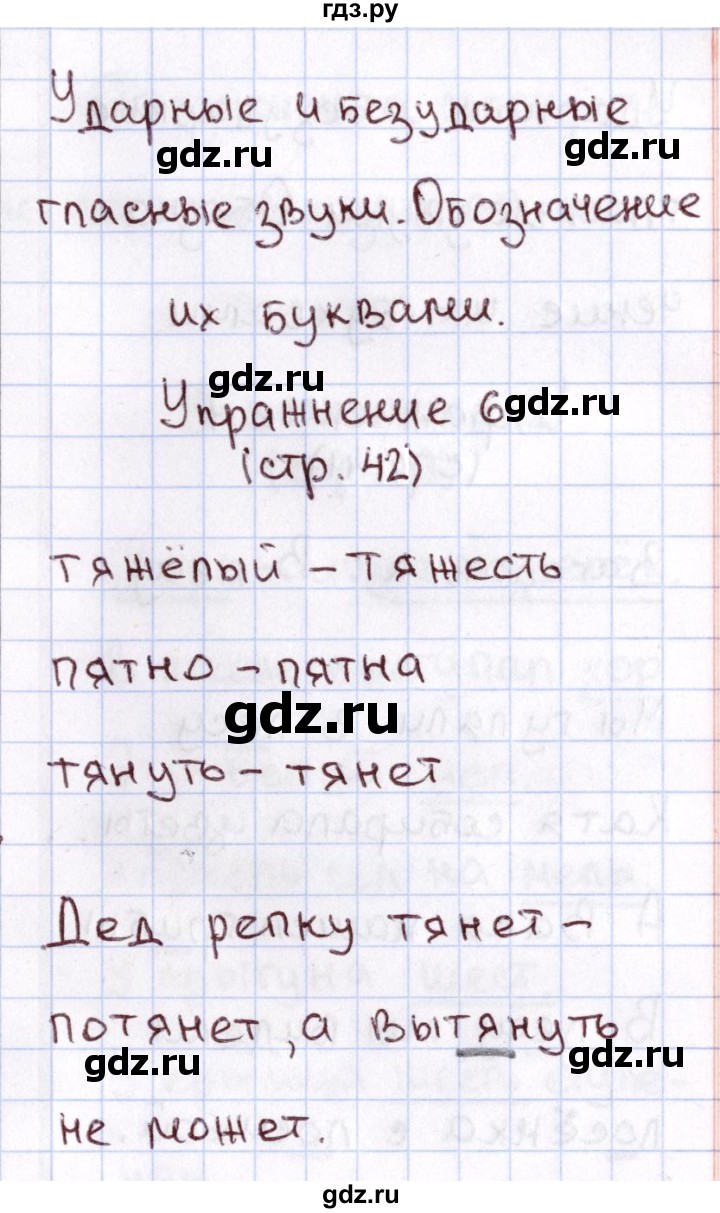 гдз.ру
Ударные и безударные
gdz.ru
gdz.ru
гласные звуки. Обозначение
их буквами.
gdz.ru
Упражнение 6
gdz.ru
(стр. 42)
тяжёлый – тяжесть
пятно – пятна
gdz.ru
тянуть – тянет
Дед репку тянет –
потянет, а вытянуть
gdz.ru
gdz.ru
не может.
gdz.ru